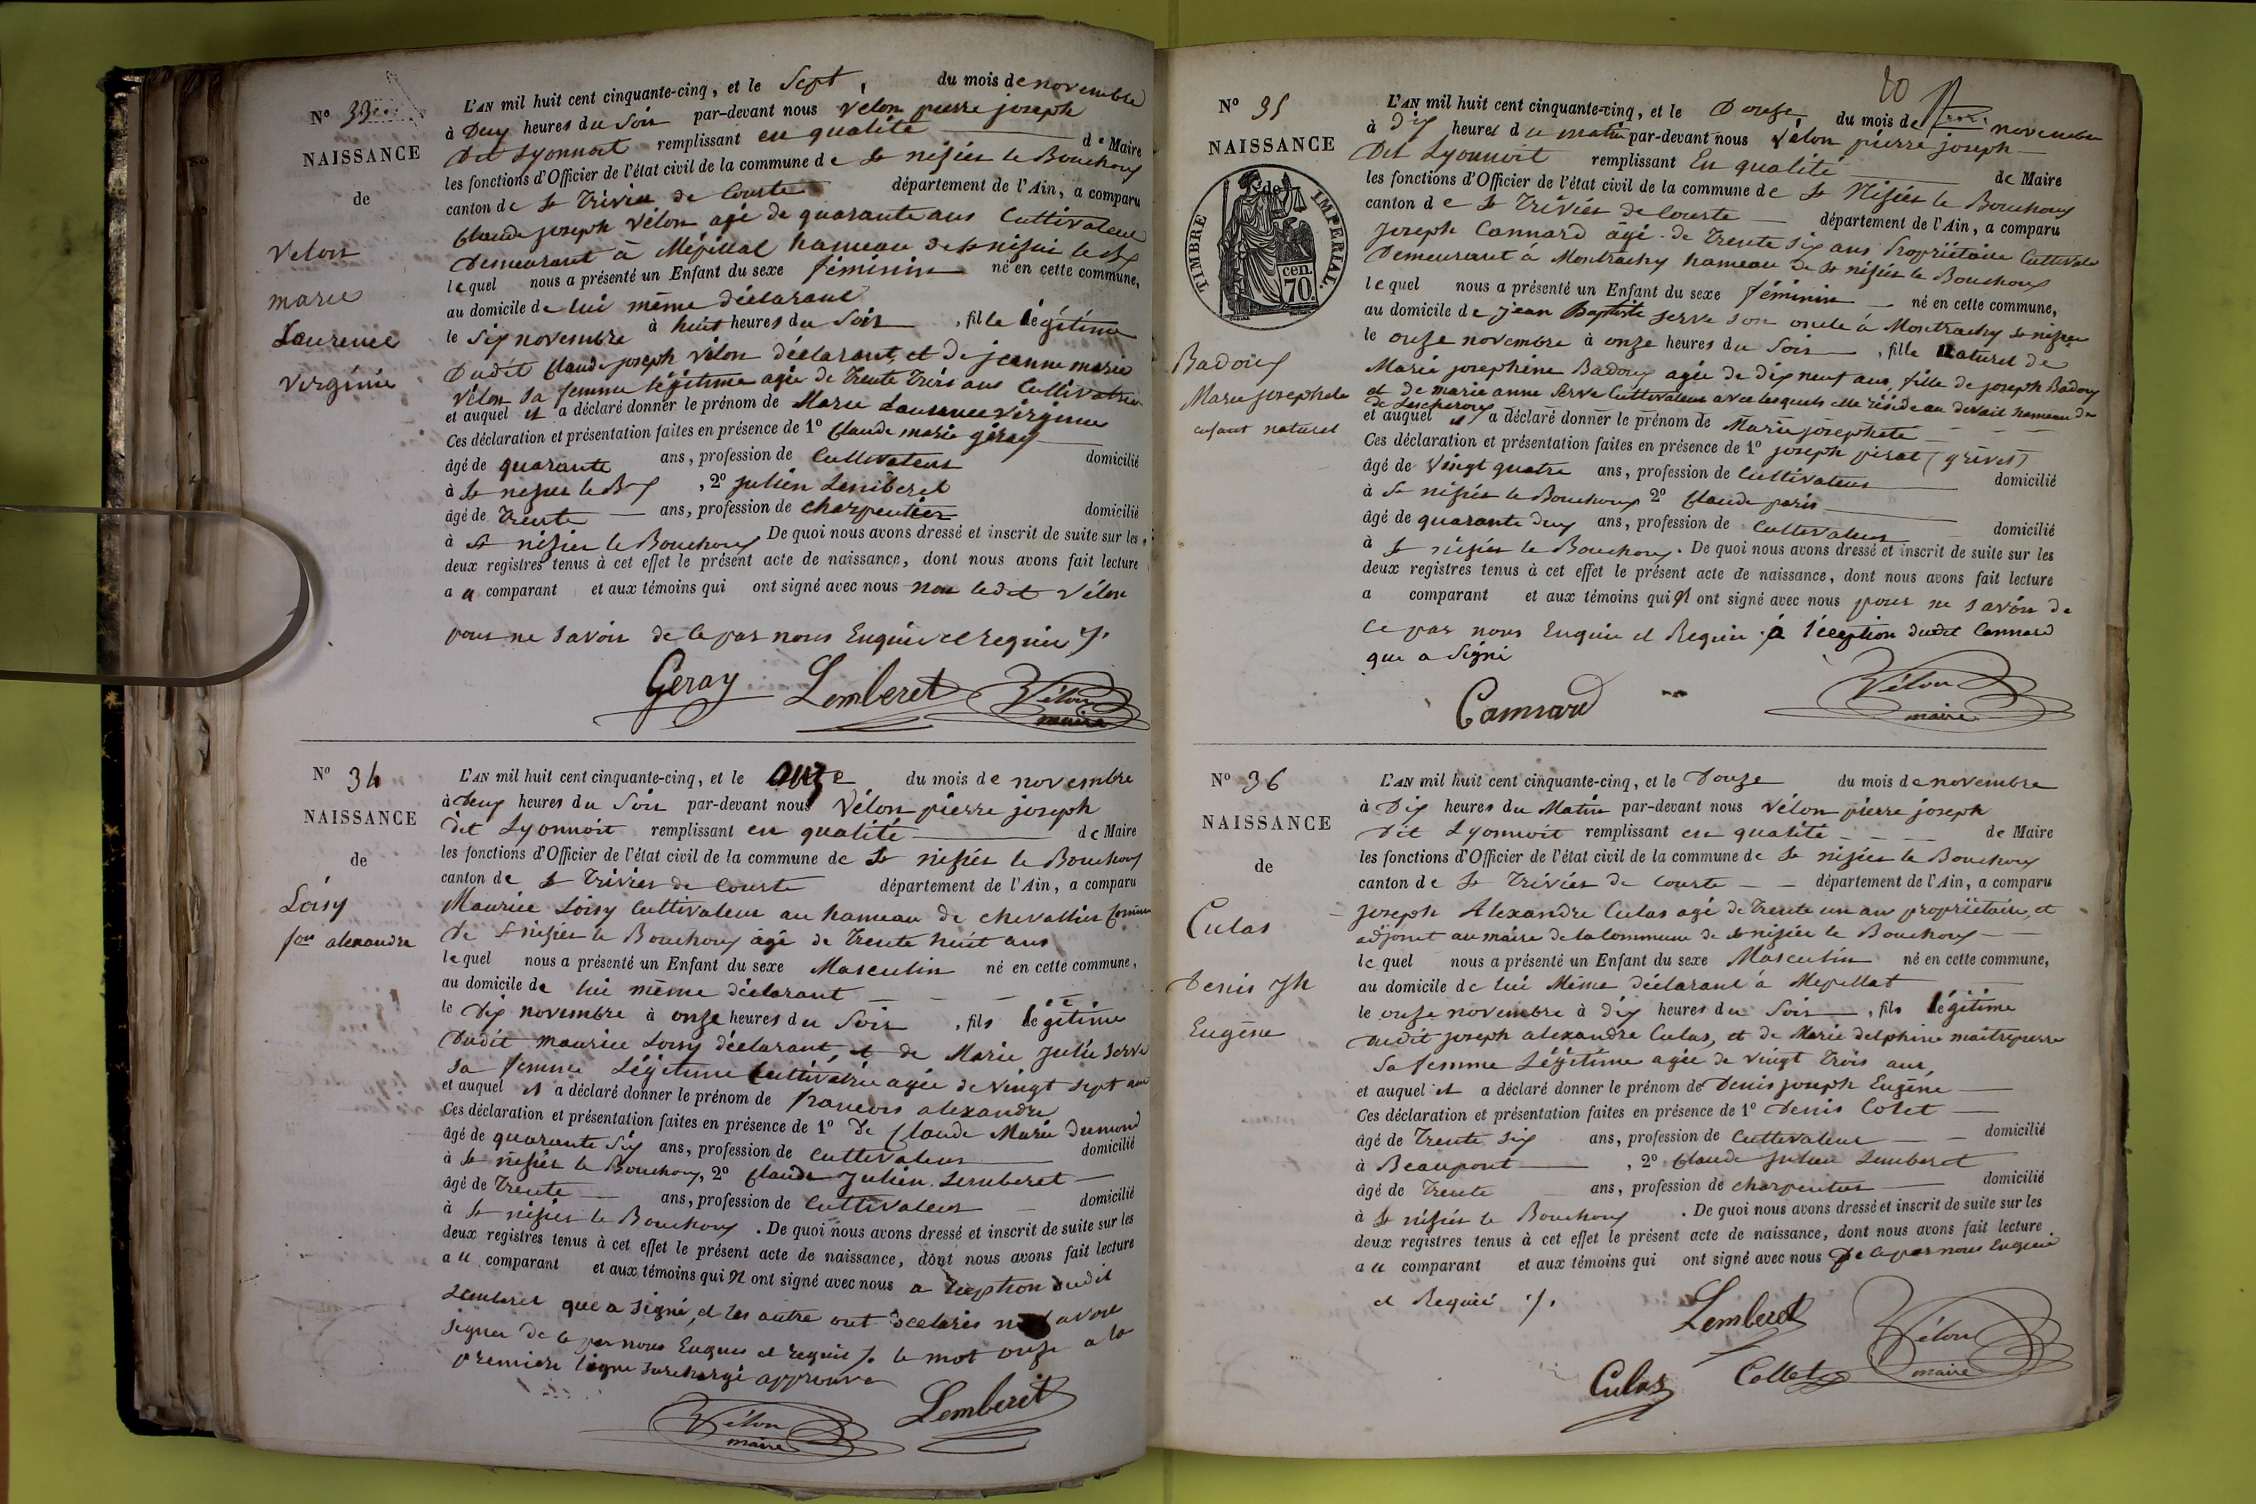 N° 33
NAISSANCE
de
Velon
marie
Laurence
Virginie
L'AN mil huit cent cinquante-cinq, et le Sept, du mois de novembre
à Deux heures du Soir par-devant nous Vélon pierre joseph
Dit Lyonnoit remplissant en qualité de Maire
les fonctions d'Officier de l'état civil de la commune de St nisier le Bouchoux
canton de St Trivier de Courte département de l'Ain, a comparu
Claude joseph Vélon agé de quarante ans Cultivateur
Demeurant à Mépillat hameau de St nisier le Bx
lequel nous a présenté un Enfant du sexe féminin né en cette commune,
au domicile de lui même déclarant
le Six novembre à huit heures du Soir, fille légitime
Dudit Claude joseph vélon déclarant, et de jeanne marie
Vélon sa femme légitime agée de Trente Trois ans Cultivatrice
et auquel il a déclaré donner le prénom de Marie Laurence Virginie
Ces déclaration et présentation faites en présence de 1° Claude marie géray
âgé de quarante ans, profession de Cultivateur domicilié
à St nisier le Bx, 2° Julien Lemberet
âgé de Trente ans, profession de charpentier domicilié
à St nisier le Bouchoux De quoi nous avons dressé et inscrit de suite sur les
deux registres tenus à cet effet le présent acte de naissance, dont nous avons fait lecture
a u comparant et aux témoins qui ont signé avec nous non ledit Vélon
pour ne savoir de ce par nous Enquis et requis ./.
Geray Lemberet Vélon
maire
N° 34
NAISSANCE
de
Loisy
fois alexandre
L'AN mil huit cent cinquante-cinq, et le onze du mois de novembre
à Deux heures du Soir par-devant nous Vélon pierre joseph
dit Lyonnoit remplissant en qualité de Maire
les fonctions d'Officier de l'état civil de la commune de St nisier le Bouchoux
canton de St Trivier de Courte département de l'Ain, a comparu
Maurice Loisy Cultivateur au hameau de chevallier Commune
de St nisier le Bouchoux âgé de Trente huit ans
lequel nous a présenté un Enfant du sexe Masculin né en cette commune,
au domicile de lui même déclarant
le Dix novembre à onze heures du Soir, fils légitime
Dudit maurice Loisy déclarant, et de Marie Julie Serve
sa femme Légitime Cultivatrice agée de vingt sept ans
et auquel il a déclaré donner le prénom de françois alexandre
Ces déclaration et présentation faites en présence de 1° de Claude Marie Dumond
âgé de quarante Six ans, profession de Cultivateur domicilié
à St nisier le Bouchoux, 2° Claude Julien Lemberet
âgé de Trente ans, profession de Cultivateur domicilié
à St nisier le Bouchoux. De quoi nous avons dressé et inscrit de suite sur les
deux registres tenus à cet effet le présent acte de naissance, dont nous avons fait lecture
a u comparant et aux témoins qui n ont signé avec nous a lception dudit
Lemberet que a signé, et les autre ont declarés ne savoir
signer de ce par nous Enquis et requis ./. le mot onze a la
premiere ligne surchargé approuvé
Vélon Lemberet
maire
20
N° 35
NAISSANCE
de
TIMBRE IMPERIAL.
70 cen.
Badoux
Marie josephete
enfant naturel
L'AN mil huit cent cinquante-cinq, et le Douze du mois de novembre
à dix heures du matin par-devant nous Vélon pierre joseph
Dit Lyonnoit remplissant En qualité de Maire
les fonctions d'Officier de l'état civil de la commune de St Nisier le Bouchoux
canton de St Trivier de Courte département de l'Ain, a comparu
joseph Cannard agé de Trente Six ans Propriétaire Cultivateur
Demeurant à Montrachy hameau de St nisier le Bouchoux
lequel nous a présenté un Enfant du sexe féminin né en cette commune,
au domicile de jean Baptiste Serve son oncle à Montrachy St nisier
le onze novembre à onze heures du Soir, fille naturel de
Marie josephine Badoux agée de dix neuf ans, fille de joseph Badoux
et de marie anne Serve Cultivateurs avec lesquels elle réside au hameau de
de Lescheroux
et auquel il a déclaré donner le prénom de Marie josephete
Ces déclaration et présentation faites en présence de 1° joseph pirat (grivet)
âgé de Vingt quatre ans, profession de Cultivateur domicilié
à St nisier le Bouchoux 2° Claude paris
âgé de quarante deux ans, profession de Cultivateur domicilié
à St nisier le Bouchoux. De quoi nous avons dressé et inscrit de suite sur les
deux registres tenus à cet effet le présent acte de naissance, dont nous avons fait lecture
a comparant et aux témoins qui n ont signé avec nous pour ne savoir de
ce par nous Enquis et Requis. à l'éception dudit Cannard
que a signé
Cannard Vélon
maire
N° 36
NAISSANCE
de
Culas
Denis Jh
Eugène
L'AN mil huit cent cinquante-cinq, et le Douze du mois de novembre
à Dix heures du Matin par-devant nous Vélon pierre joseph
Dit Lyonnoit remplissant en qualité de Maire
les fonctions d'Officier de l'état civil de la commune de St nisier le Bouchoux
canton de St Trivier de Courte département de l'Ain, a comparu
joseph Alexandre Culas agé de Trente un ans propriétaire, et
adjoint au maire de la Commune de St nisier le Bouchoux
lequel nous a présenté un Enfant du sexe Masculin né en cette commune,
au domicile de lui Même déclarant à Mepillat
le onze novembre à dix heures du Soir, fils légitime
dudit joseph alexandre Culas, et de Marie delphine maitrepierre
sa femme Légitime agée de vingt trois ans
et auquel il a déclaré donner le prénom de Denis joseph Eugène
Ces déclaration et présentation faites en présence de 1° Denis Colet
âgé de Trente six ans, profession de Cultivateur domicilié
à Beaupont, 2° Claude Julien Lemberet
âgé de Trente ans, profession de charpentier domicilié
à St nisier le Bouchoux. De quoi nous avons dressé et inscrit de suite sur les
deux registres tenus à cet effet le présent acte de naissance, dont nous avons fait lecture
a u comparant et aux témoins qui ont signé avec nous De ce par nous Enquis
et Requis ./.
Lemberet Vélon
maire
Culas Collet